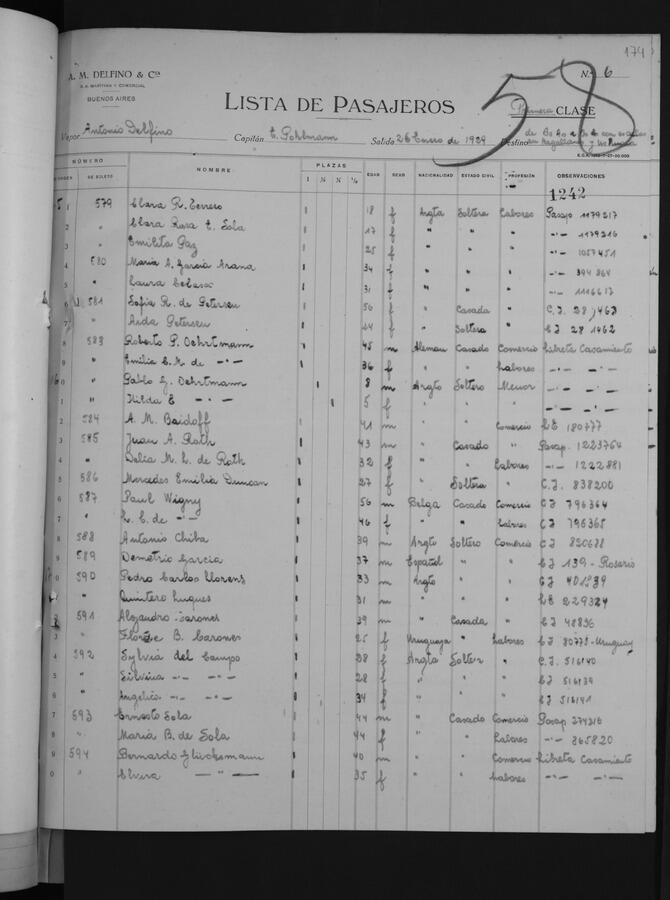 174
A. M. DELFINO & Cía
S. A. MARÍTIMA Y COMERCIAL
BUENOS AIRES
No. 6
58
LISTA DE PASAJEROS
Primera CLASE
Vapor Antonio Delfino Capitán E. Pohlmann Salida 26 Enero de 1939 Destino
NÚMERO NOMBRE PLAZAS EDAD SEXO NACIONALIDAD ESTADO CIVIL PROFESIÓN OBSERVACIONES
ORDEN DE BOLETO 1 ½ ¼ ⅛ 1242
1 579 Clara R. Terrero 1 18 f Argta Soltera Labores Pasap 1179217
2 " Clara Rosa E. Sola 1 17 f " " " -"- 1179216
3 " Emilita Paz 1 25 f " " " -"- 1057451
4 580 Maria C. Garcia Arana 1 34 f " " " -"- 394864
5 " Laura 1 31 f " " " -"- 1116617
6 581 Sofia R. de Petersen 1 56 f " Casada " C.I. 281463
7 " Aida Petersen 1 24 f " Soltera " CI 281462
8 583 Roberto P. Oehrtmann 1 45 m Aleman Casado Comercio Libreta Casamiento
9 " Emilia E. M. de -"- 1 36 f " " Labores -"- -"-
0 " Pablo G. Oehrtmann 1 8 m Argto Soltero Menor -"- -"-
1 " Hilda E -"- 1 5 f " " " -"- -"-
2 584 A. M. Baidoff 1 41 m " " Comercio LE 180777
3 585 Juan A. Roth 1 43 m " Casado " Pasap. 1223764
4 " Delia M. L. de Roth 1 32 f " " Labores -"- 1222881
5 586 Mercedes Emilia Duncan 1 27 f " Soltera " C.I. 838200
6 587 Paul Wigny 1 56 m Belga Casado Comercio CI 796364
7 " L. E. de -"- 1 46 f " " Labores CI 796365
8 588 Antonio Chiba 1 39 m Argto Soltero Comercio CI 850688
9 589 Demetrio Garcia 1 37 m Español " " CI 139-Rosario
0 590 Pedro Carlos Llorens 1 33 m Argto " " CI 401939
1 " Quintero Lugues 1 31 m " " " LE 229324
2 591 Alejandro Carones 1 39 m " Casado " CI 48836
3 " B. Carones 1 25 f Uruguaya " Labores CI 80773-Uruguay
4 592 Sylvia del Campo 1 38 f Argta Solter " C.I. 516140
5 " Silvina -"- -"- 1 28 f " " " CI 516139
6 " Angelica -"- -"- 1 34 f " " " CI 516141
7 593 Ernesto Sola 1 44 m " Casado Comercio Pasap 274316
8 " Maria B. de Sola 1 44 f " " Labores -"- 865820
9 594 Bernardo Glücksmann 1 40 m " " Comercio Libreta Casamiento
0 Elvira -"- 1 35 f " " Labores -"- -"-